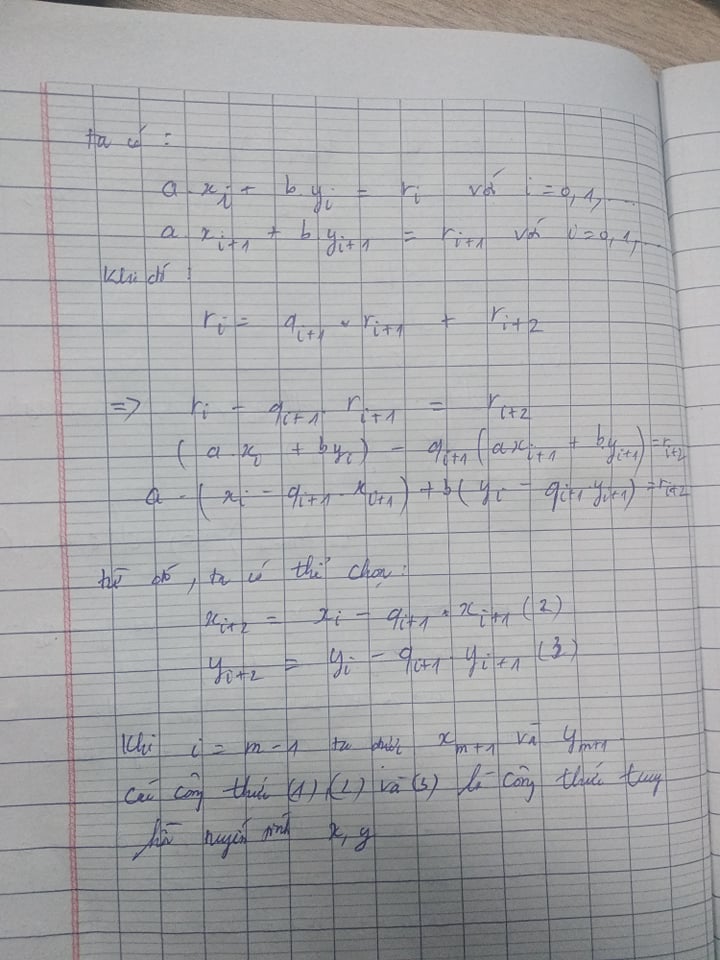 ta có :
a . x_i + b y_i = r_i với i = 0, 1, ...
a . x_{i+1} + b y_{i+1} = r_{i+1} với i = 0, 1, ...
Khi đó :
r_i = q_{i+1} . r_{i+1} + r_{i+2}
=> r_i - q_{i+1} . r_{i+1} = r_{i+2}
(a . x_i + b y_i) - q_{i+1} (a x_{i+1} + b y_{i+1}) = r_{i+2}
a . (x_i - q_{i+1} . x_{i+1}) + b (y_i - q_{i+1} . y_{i+1}) = r_{i+2}
từ đó , ta có thể chọn :
x_{i+2} = x_i - q_{i+1} . x_{i+1} (2)
y_{i+2} = y_i - q_{i+1} . y_{i+1} (3)
Khi i = m - 1 ta được x_{m+1} và y_{m+1}
các công thức (1), (2) và (3) là công thức truy
hồi tính x, y